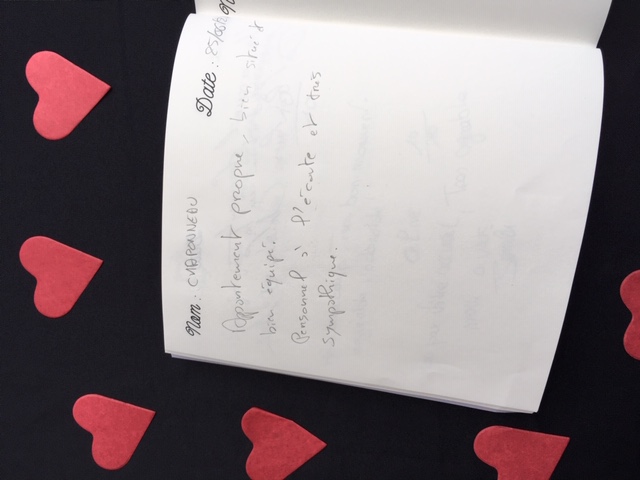 Nom: CHAPONNEAU Date: 25/05/
Appartement propre, bien situé &
bien équipé.
Personnel à l'écoute et très
sympathique.